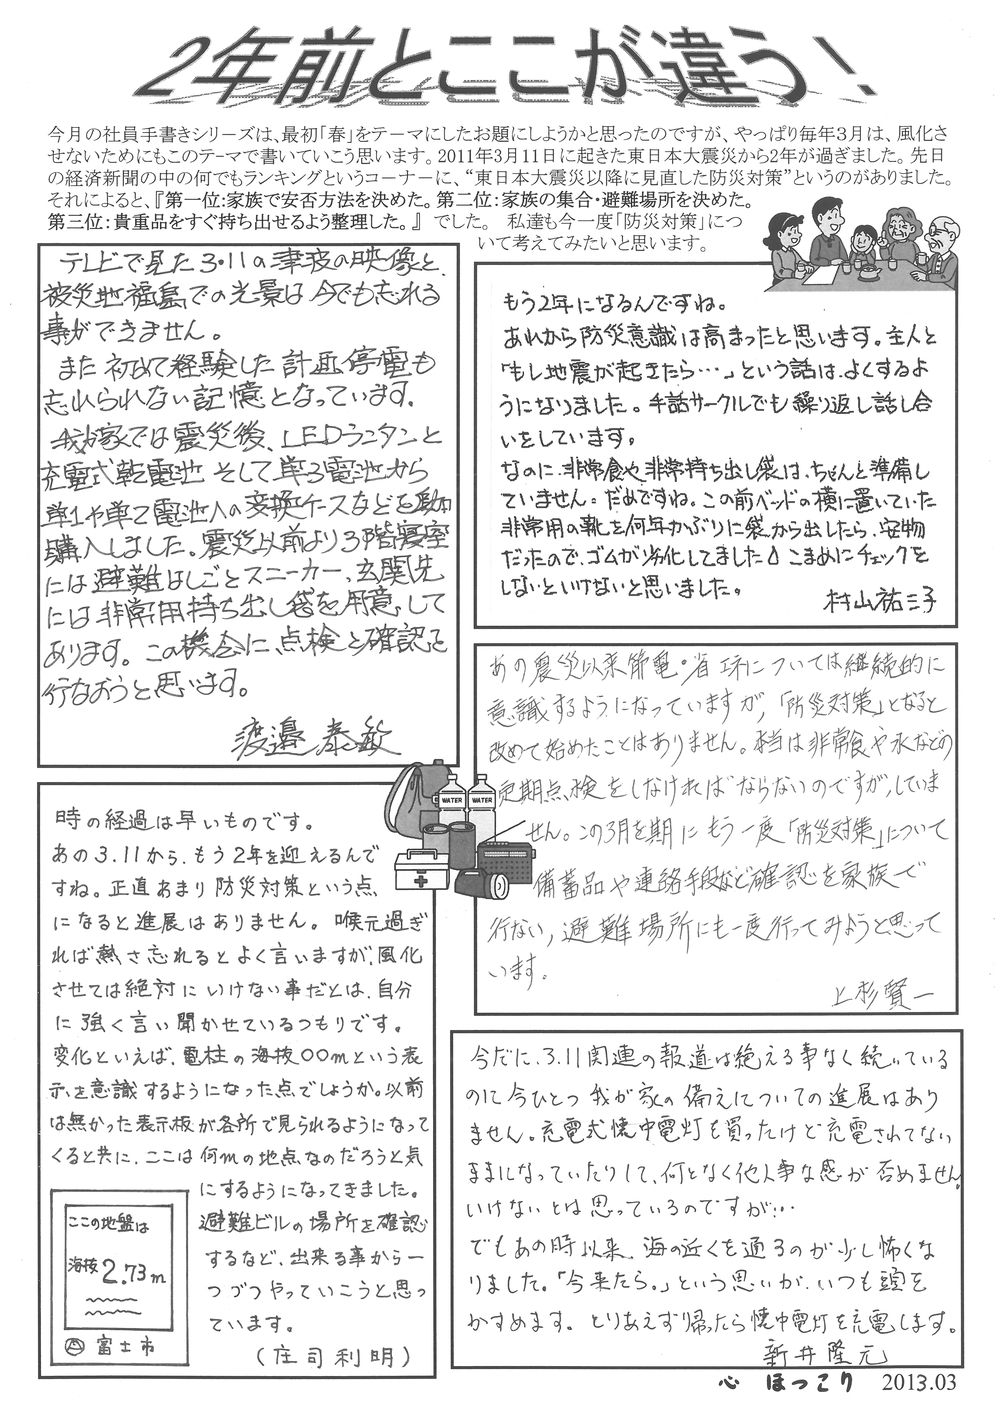 2年前とここが違う!
今月の社員手書きシリーズは、最初「春」をテーマにしたお題にしようかと思ったのですが、やっぱり毎年3月は、風化さ
せないためにもこのテーマで書いていこう思います。2011年3月11日に起きた東日本大震災から2年が過ぎました。先日
の経済新聞の中の何でもランキングというコーナーに、“東日本大震災以降に見直した防災対策”というのがありました。
それによると、『第一位:家族で安否方法を決めた。第二位:家族の集合・避難場所を決めた。
第三位:貴重品をすぐ持ち出せるよう整理した。』でした。 私達も今一度「防災対策」につ
いて考えてみたいと思います。
テレビで見た3・11の津波の映像と、
被災地福島での光景は今でも忘れる
事ができません。
また初めて経験した計画停電も
忘れられない記憶となっています。
我が家では震災後、LEDランタンと
充電式乾電池 そして単3電池から
単1や単2電池への変換ケースなどを
購入しました。震災以前より3階寝室
には避難はしごとスニーカー、玄関先
には非常用持ち出し袋を用意して
あります。この機会に、点検と確認を
行なおうと思います。
渡邉 泰敏
もう2年になるんですね。
あれから防災意識は高まったと思います。主人と
「もし地震が起きたら…」という話は、よくするよ
うになりました。手話サークルでも繰り返し話し合
いをしています。
なのに、非常食や非常持ち出し袋は、ちゃんと準備し
ていません。だめですね。この前ベッドの横に置いていた
非常用の靴を何年かぶりに袋から出したら、安物
だったので、ゴムが劣化してました こまめにチェックを
しないといけないと思いました。
村山祐三子
あの震災以来節電・省エネについては継続的に
意識するようになっていますが、「防災対策」となると
改めて始めたことはありません。本当は非常食や水などの
定期点検をしなければならないのですが、していま
せん。この3月を期にもう一度「防災対策」について
備蓄品や連絡手段など確認を家族で
行ない、避難場所にも一度行ってみようと思って
います。
上杉賢一
WATER
WATER
時の経過は早いものです。
あの3.11から、もう2年を迎えるんで
すね。正直あまり防災対策という点
になると進展はありません。喉元過ぎ
れば熱さ忘れるとよく言いますが、風化
させては絶対にいけない事だとは、自分
に強く言い聞かせているつもりです。
変化といえば、電柱の海抜〇〇mという表
示を意識するようになった点でしょうか。以前
は無かった表示板が各所で見られるようになって
くると共に、ここは何mの地点なのだろうと気
にするようになってきました。
避難ビルの場所を確認
するなど、出来る事から一
つづつやっていこうと思っ
ています。
(庄司利明)
ここの地盤は
海抜2.73m
富士市
今だに、3.11関連の報道は絶える事なく続いている
のに今ひとつ我が家の備えについての進展はあり
ません。充電式懐中電灯を買ったけど充電されてない
ままになっていたりして、何となく他人事な感が否めません。
いけないとは思っているのですが…
でもあの時以来、海の近くを通るのが少し怖くな
りました。「今来たら。」という思いが、いつも頭を
かすめます。とりあえず帰ったら懐中電灯を充電します。
新井隆元
心 ほっこり 2013.03